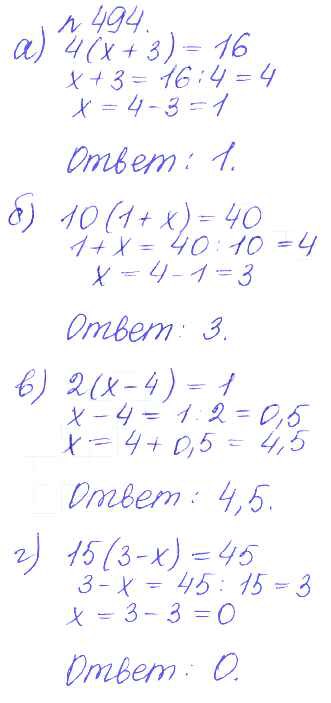 № 494.
а) 4(x + 3) = 16
x + 3 = 16 : 4 = 4
x = 4 - 3 = 1
Ответ: 1.
б) 10(1 + x) = 40
1 + x = 40 : 10 = 4
x = 4 - 1 = 3
Ответ: 3.
в) 2(x - 4) = 1
x - 4 = 1 : 2 = 0,5
x = 4 + 0,5 = 4,5
Ответ: 4,5.
г) 15(3 - x) = 45
3 - x = 45 : 15 = 3
x = 3 - 3 = 0
Ответ: 0.